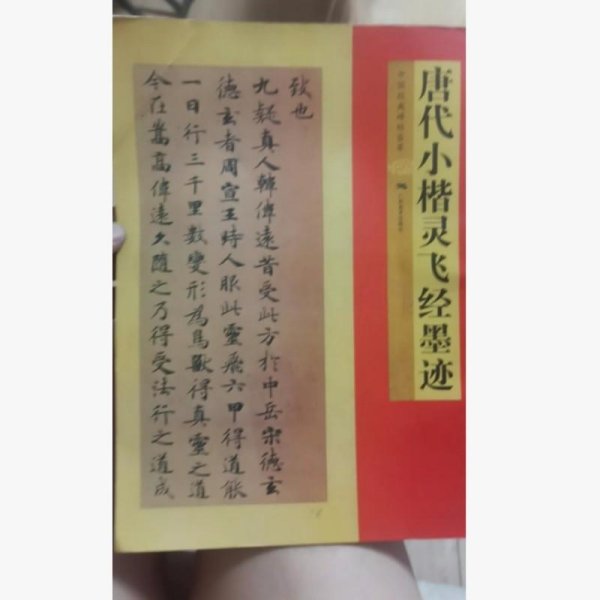 唐代小楷灵飞经墨迹
致也
九疑真人韓偉遠昔受此方於中岳宋德玄
德玄者周宣王時人服此靈飛六甲得道能
一日行三千里數變形為鳥獸得真靈之道
今在嵩高偉遠久隨之乃得受法行之道成